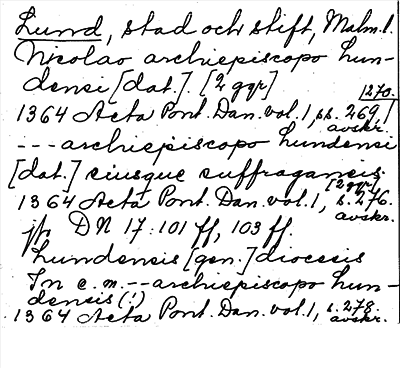 Lund, stad och stift, Malm.l.
Nicolao archiepiscopo Lun-
densi [dat.]. [2 ggr]
1364 Acta Pont. Dan. vol. 1, ss. 269, 1270.
avskr.
--- archiepiscopo Lundensi
[dat.] eiusque suffraganeis.
[2 ggr]
1364 Acta Pont. Dan. vol. 1, s. 276.
avskr.
jfr DN 17: 101 ff, 103 ff.
Lundensis [gen.] diocesis
In e.m. -- archiepiscopo Lun-
densis (!)
1364 Acta Pont. Dan. vol. 1, s. 278.
avskr.